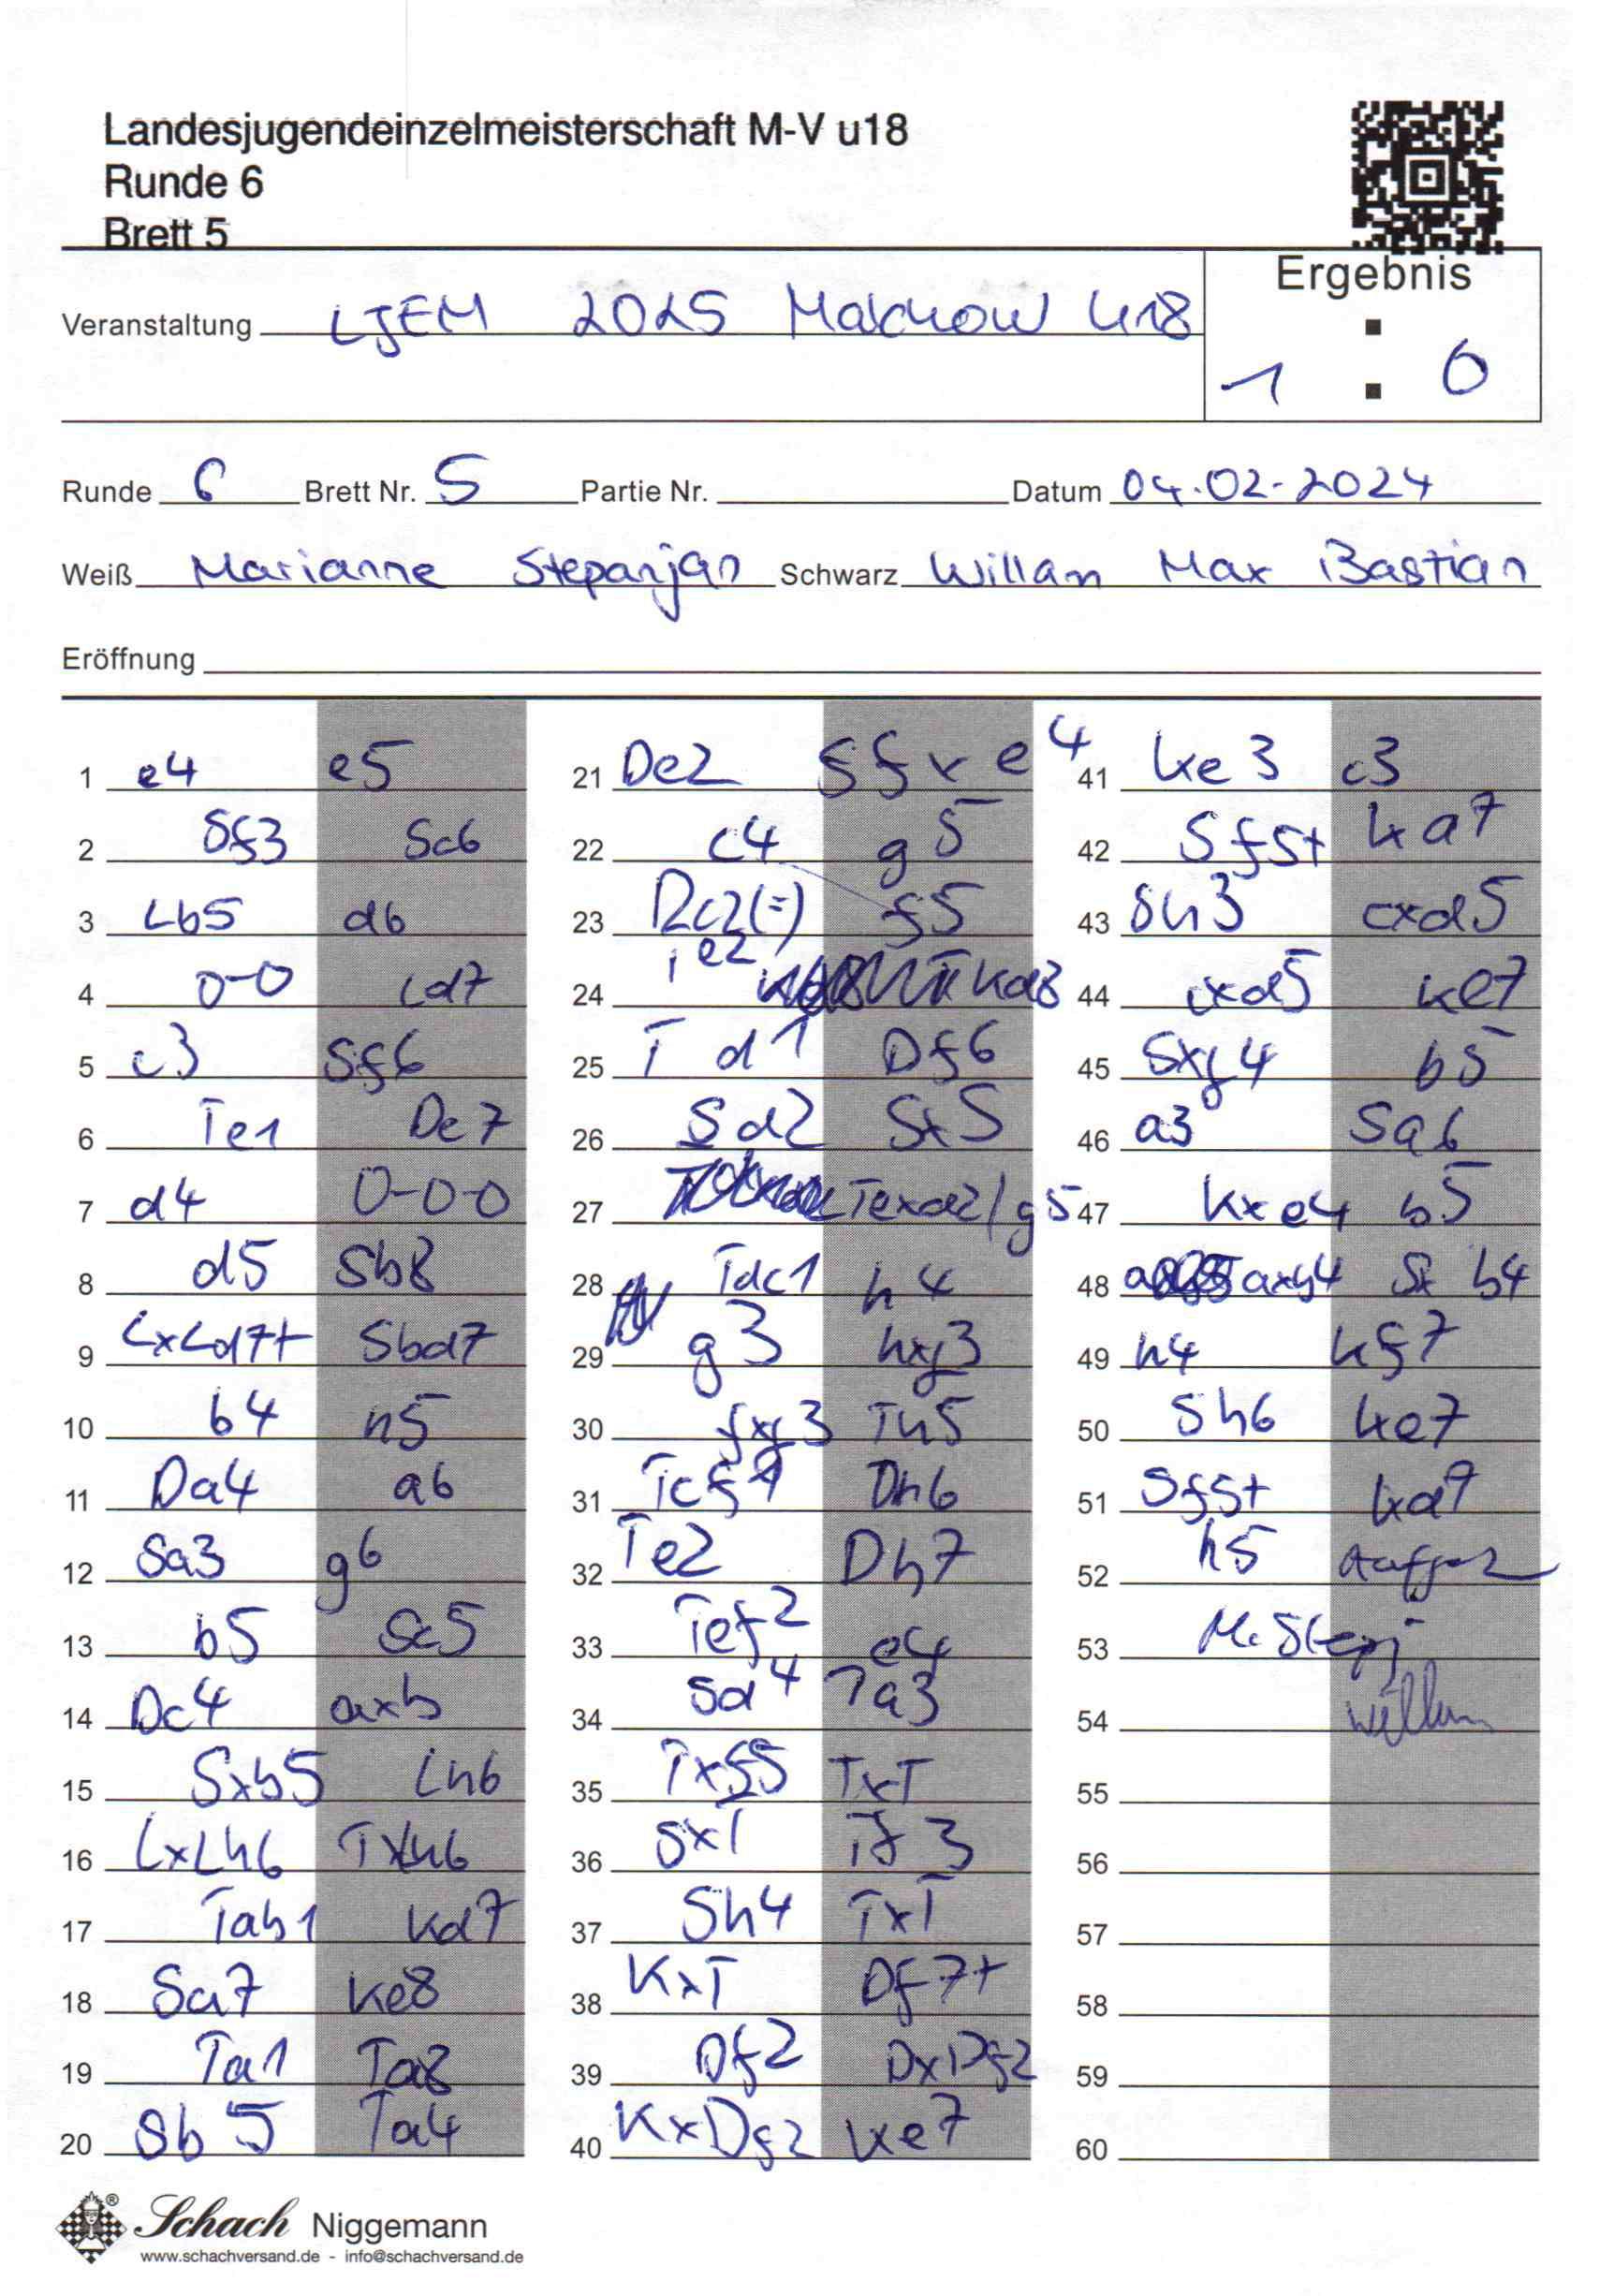 Landesjugendeinzelmeisterschaft M-V u18
Runde 6
Brett 5
Ergebnis
Veranstaltung LJEM 2025 Malchow U18
1 : 0
Runde 6 Brett Nr. 5 Partie Nr. Datum 04.02.2024
Weiß Marianne Stepanjan Schwarz Willam Max Bastian
Eröffnung
1 e4 e5
2 Sf3 Sc6
3 Lb5 d6
4 0-0 Ld7
5 c3 Sf6
6 Te1 De7
7 d4 0-0-0
8 d5 Sb8
9 LxLd7+ Sbd7
10 b4 h5
11 Da4 a6
12 Sa3 g6
13 b5 Sc5
14 Dc4 axb
15 Sxb5 Lh6
16 LxLh6 TxLh6
17 Tab1 Kd7
18 Sa7 Ke8
19 Ta1 Ta8
20 Sb5 Ta4
21 De2 Sfxe4
22 c4 g5
23 Dc2(=) f5
24 Te2 Kd8
25 Td1 Df6
26 Sd2 SxS
27 Texd2 / g5
28 Tdc1 h4
29 g3 hxg3
30 fxg3 Th5
31 Tcf1 Dh6
32 Te2 Dh7
33 Tef2 e4
34 Sd4 Ta3
35 Txf5 TxT
36 SxT Tf3
37 Sh4 TxT
38 KxT Df7+
39 Df2 DxDf2
40 KxDf2 Ke7
41 Ke3 c3
42 Sf5+ Kd7
43 Sh3 cxd5
44 cxd5 Ke7
45 Sxg4 b5
46 a3 Sa6
47 Kxe4 b5
48 axb4 Sxb4
49 h4 Kf7
50 Sh6 Ke7
51 Sf5+ Kd7
52 h5 Aufg
53 M. Stepj
54 Willam
55
56
57
58
59
60
Schach Niggemann
www.schachversand.de - info@schachversand.de